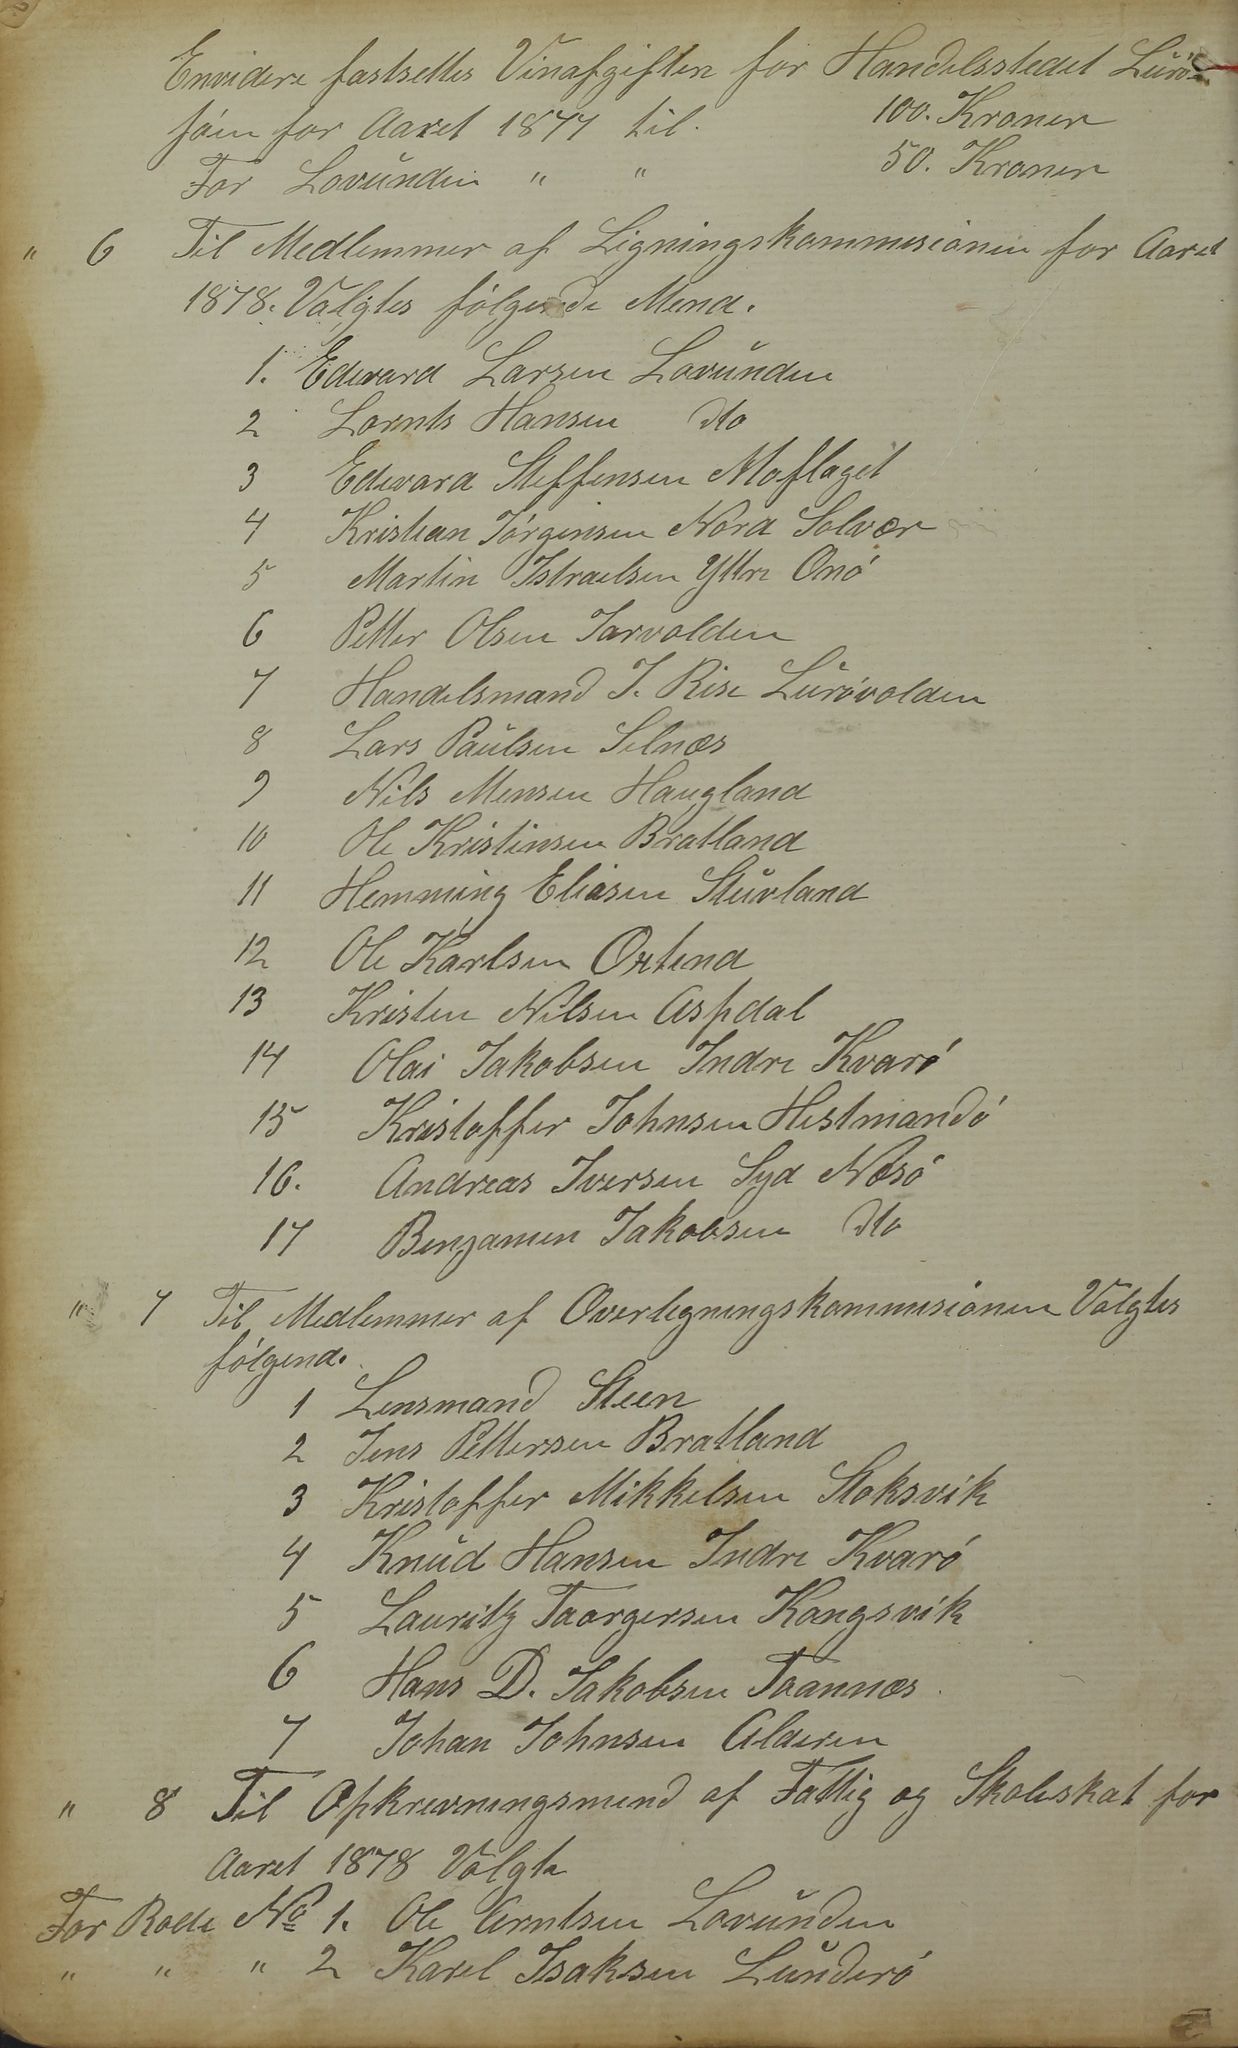 Envidere fastsettes Vinafgiften for Handelsstedet Lurö-
föin for Aaret 1877 til. 100. Kroner
For Lovunden " " 50. Kroner
" 6 Til Medlemmer af Ligningskommisionen for Aaret
1878. Valgtes følgende Mend.
1. Edevard Larsen Lovunden
2 Lornts Hansen dto
3 Edevard Steffensen Moflaget
4 Kristian Jörgensen Nord Solvær
5 Martin Istraelsen Yttre Onö
6 Petter Olsen Jarvolden
7 Handelsmand J. Rise Lurövolden
8 Lars Paulsen Selnæs
9 Nils Mensen Haugland
10 Ole Kristinsen Bratland
11 Hemming Eliasen Stuvland
12 Ole Karlsen Oxtind
13 Kristen Nilsen Aspdal
14 Olai Jakobsen Indre Kvarö
15 Kristoffer Johnsen Hestmandö
16. Andreas Iversen Syd Næsö
17 Benjamen Jakobsen dto
" 7 Til Medlemmer af Overlegningskommisionen Valgtes
følgend.
1 Lensmand Steen
2 Jens Pettersen Bratland
3 Kristoffer Mikkelsen Stoksvik
4 Knud Hansen Indre Kvarö
5 Lauritz Taorgersen Kongsvik
6 Hans D. Jakobsen Taannæs
7 Johan Johnsen Alderen
" 8 Til Opkrevningsmend af Fattig og Skoleskat for
Aaret 1878 Valgte
For Rode No 1. Ole Arntsen Lovunden
" " " 2 Karel Isaksen Lunderö